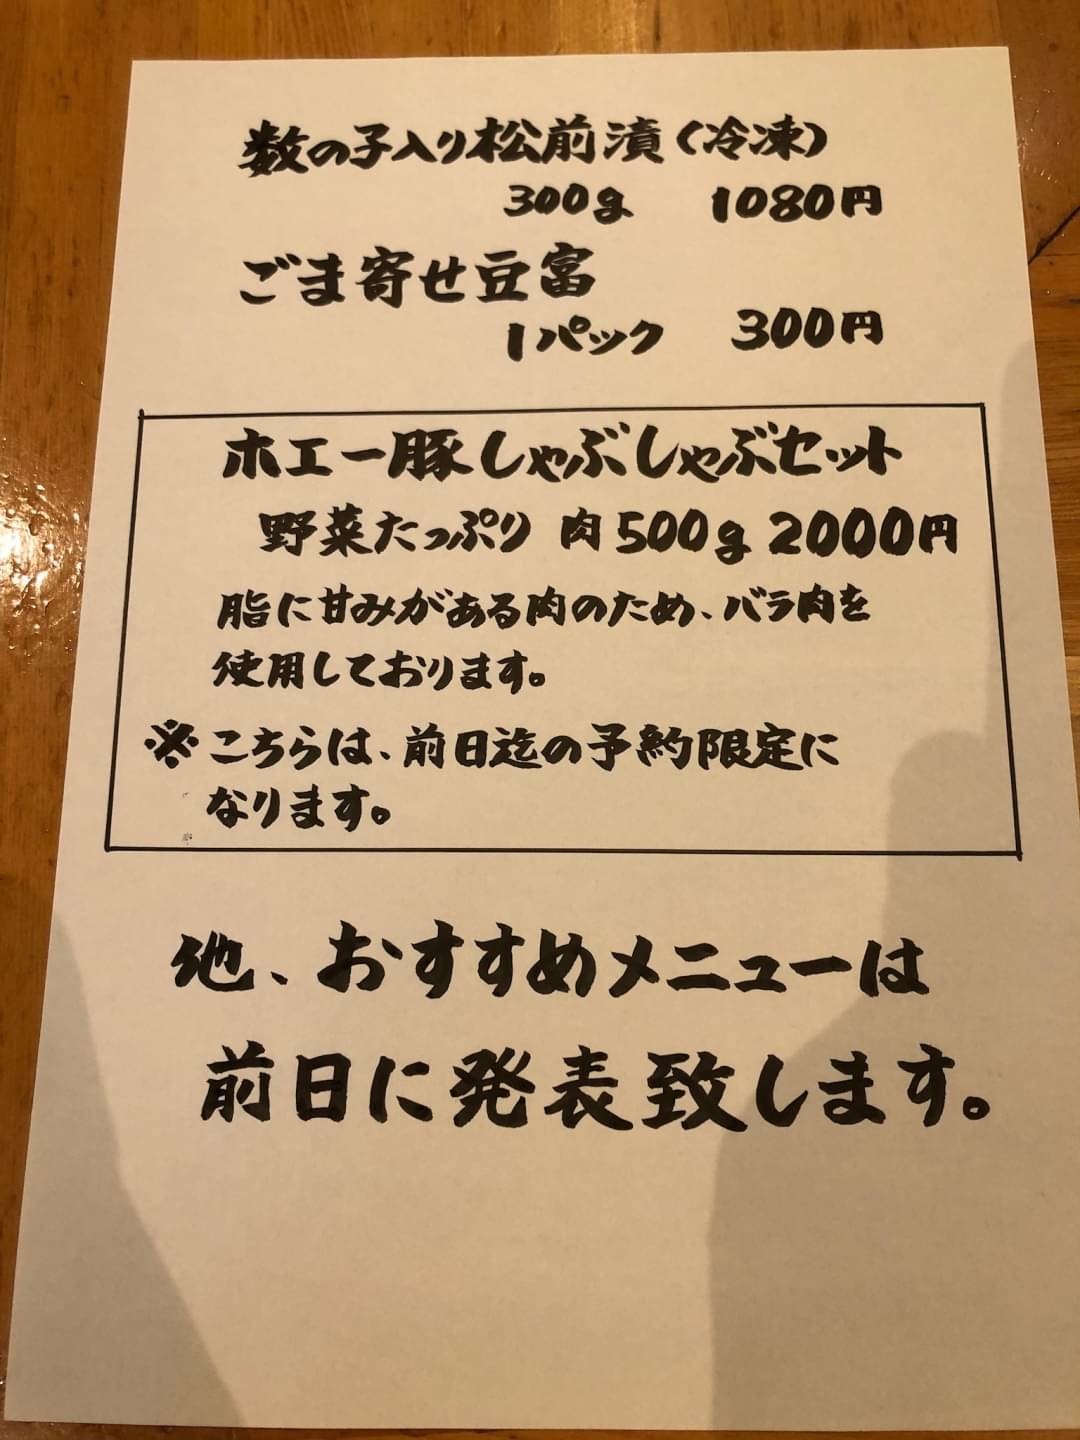 数の子入り松前漬(冷凍)
300g 1080円
ごま寄せ豆富
1パック 300円
ホエー豚しゃぶしゃぶセット
野菜たっぷり 肉500g 2000円
脂に甘みがある肉のため、バラ肉を
使用しております。
※こちらは、前日迄の予約限定に
なります。
他、おすすめメニューは
前日に発表致します。